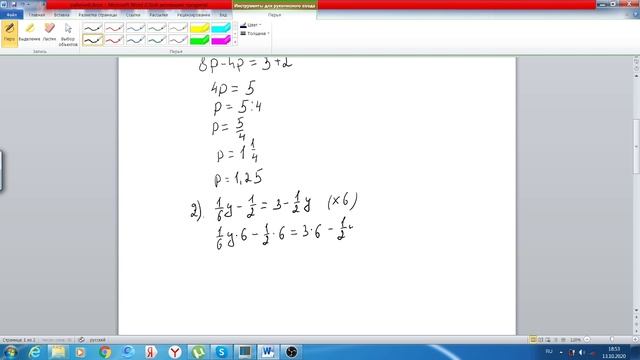 Инструменты для рукописного ввода
Файл
Главная
Вставка
Разметка страницы
Ссылки
Рассылки
Рецензирование
Вид
Перья
Перо
Выделение
Ластик
Выбор объектов
Цвет
Толщина
Запись
Перья
8p-4p = 3+2
4p = 5
p = 5:4
p = 5/4
p = 1 1/4
p = 1,25
2). 1/6 y - 1/2 = 3 - 1/2 y (×6)
1/6 y·6 - 1/2·6 = 3·6 - 1/2
русский
120%
RU
18:53
13.10.2020